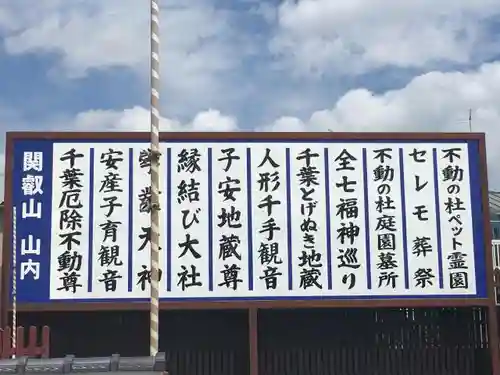 関叡山 山内
千葉厄除不動尊
安産子育観音
天神
縁結び大社
子安地蔵尊
人形千手観音
千葉とげぬき地蔵
全七福神巡り
不動の杜庭園墓所
セレモ葬祭
不動の杜ペット霊園